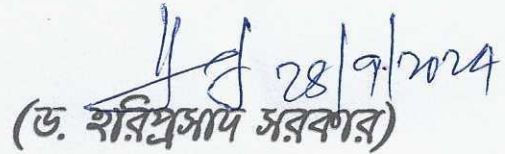 28/9/2024
(ড. হরিপ্রসাদ সরকার)